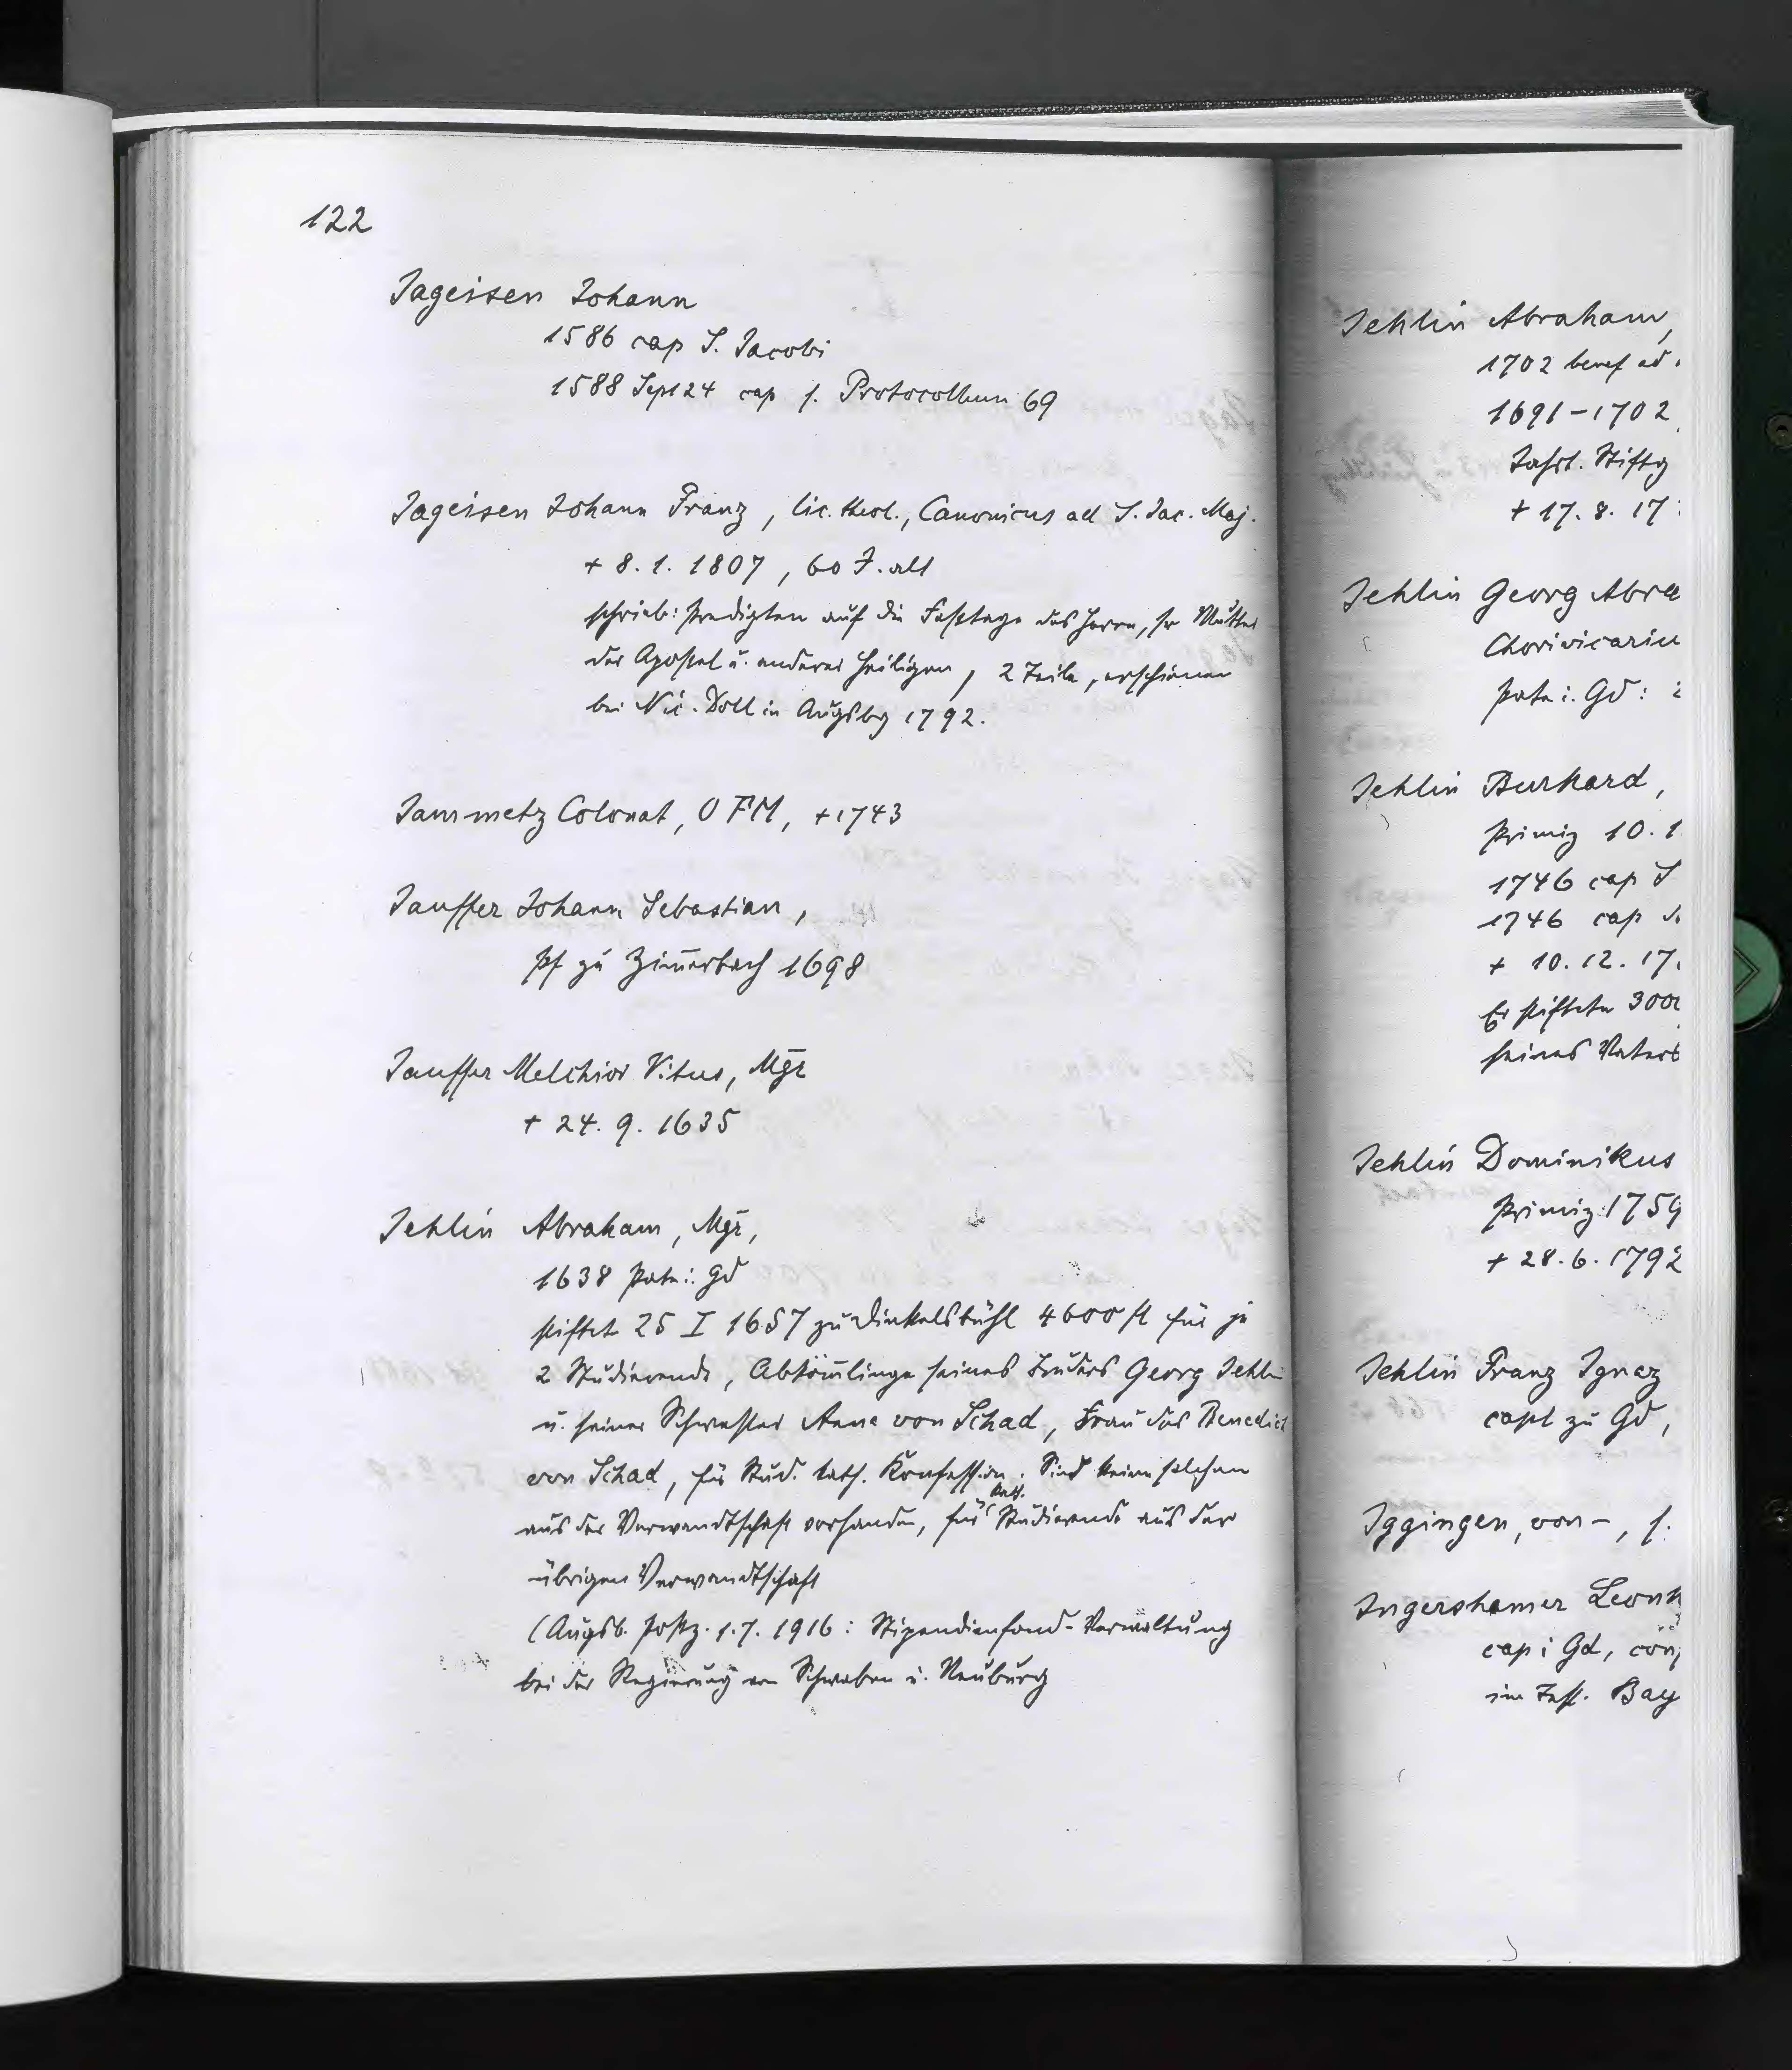 122
Jageisen Johann
1586 cap S. Jacobi
1588 Sept 24 cap s. Protocollum 69
Jageisen Johann Franz, lic. theol., Canonicus ad S. Jac. Maj.
+ 8.1.1807, 60 J. alt
schrieb: Predigten auf die Festtage des Herrn, sr Mutter
der Apostel u. anderer Heiligen, 2 Teile, erschienen
bei Nic. Doll in Augsbg 1792.
Jammetz Colonat, OFM, +1743
Jauffer Johann Sebastian,
Pf zu Zim̄erbach 1698
Jauffer Melchior Vitus, Mgr
+ 24.9.1635
Jehlin Abraham, Mgr,
1638 Pate i. Gd
stiftet 25 I 1657 zu Dinkelsbühl 4600 fl für je
2 Studierende, Abköm̄linge seines Bruders Georg Jehlin
u. seiner Schwester Anna von Schad, Frau des Benedict
von Schad, für Stud. kath. Konfession. Sind keine solchen
aus der Verwandtschaft vorhanden, für kath. Studierende aus der
übrigen Verwandtschaft
(Augsb. Postz. 1.7.1916: Stipendienfond-Verwaltung
bei der Regierung von Schwaben u. Neuburg
Jehlin Abraham,
1702 benef ad
1691-1702
Jahrt. Stiftg
+ 17.8.17
Jehlin Georg Abra
Chorivicariu
Pate i. Gd:
Jehlin Burkard,
Primiz 10.1
1746 cap S
1746 cap
+ 10.12.17
Er stiftete 300
seines Vaters
Jehlin Dominikus
Primiz 1759
+ 28.6.1792
Jehlin Franz Ignaz
capl zu Gd,
Iggingen, von -, s.
Ingershamer Leonh
cap i Gd, con
im Jesh. Bay